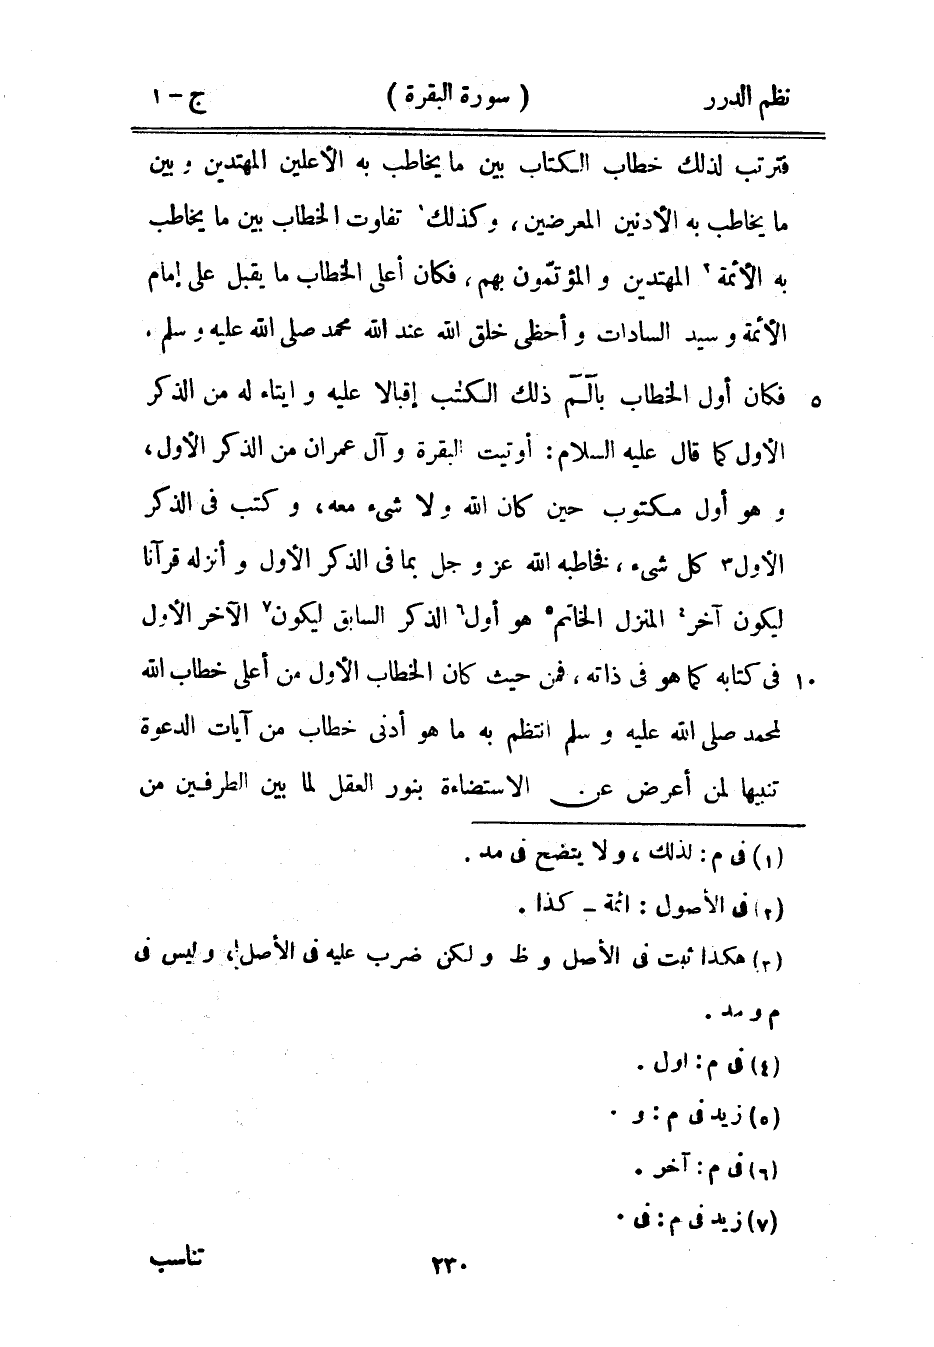 نظم الدرر ( سورة البقرة ) ج - ١
فترتب لذلك خطاب الكتاب بين ما يخاطب به الأعلين المهتدين و بين
ما يخاطب به الأدنين المعرضين ، وكذلك ١ تفاوت الخطاب بين ما يخاطب
به الأئمة ٢ المهتدين و المؤتمّون بهم ، فكان أعلى الخطاب ما يقبل على إمام
الأئمة و سيد السادات و أحظى خلق الله عند الله محمد صلى الله عليه و سلم .
٥ فكان أول الخطاب بآلٓمٓ ذلك الكتٰب إقبالا عليه و ايتاء له من الذكر
الأول كما قال عليه السلام : أوتيت البقرة و آل عمران من الذكر الأول ،
و هو أول مكتوب حين كان الله ولا شيء معه ، و كتب فى الذكر
الأول ٣ كل شيء ، فخاطبه الله عز و جل بما فى الذكر الأول و أنزله قرآنا
ليكون آخر ٤ المنزل الخاتم ٥ هو أول ٦ الذكر السابق ليكون ٧ الآخر الأول
١٠ فى كتابه كما هو فى ذاته ، فمن حيث كان الخطاب الأول من أعلى خطاب الله
لمحمد صلى الله عليه و سلم انتظم به ما هو أدنى خطاب من آيات الدعوة
تنبيها لمن أعرض عن الاستضاءة بنور العقل لما بين الطرفين من
(١) فى م : لذلك ، و لا يتضح فى مد .
(٢) فى الأصول : ائمة - كذا .
(٣) هكذا ثبت فى الأصل و ظ و لكن ضرب عليه فى الأصل ، و ليس فى
م و مد .
(٤) فى م : اول .
(٥) زيد فى م : و .
(٦) فى م : آخر .
(٧) زيد فى م : فى .
٢٣٠ تناسب